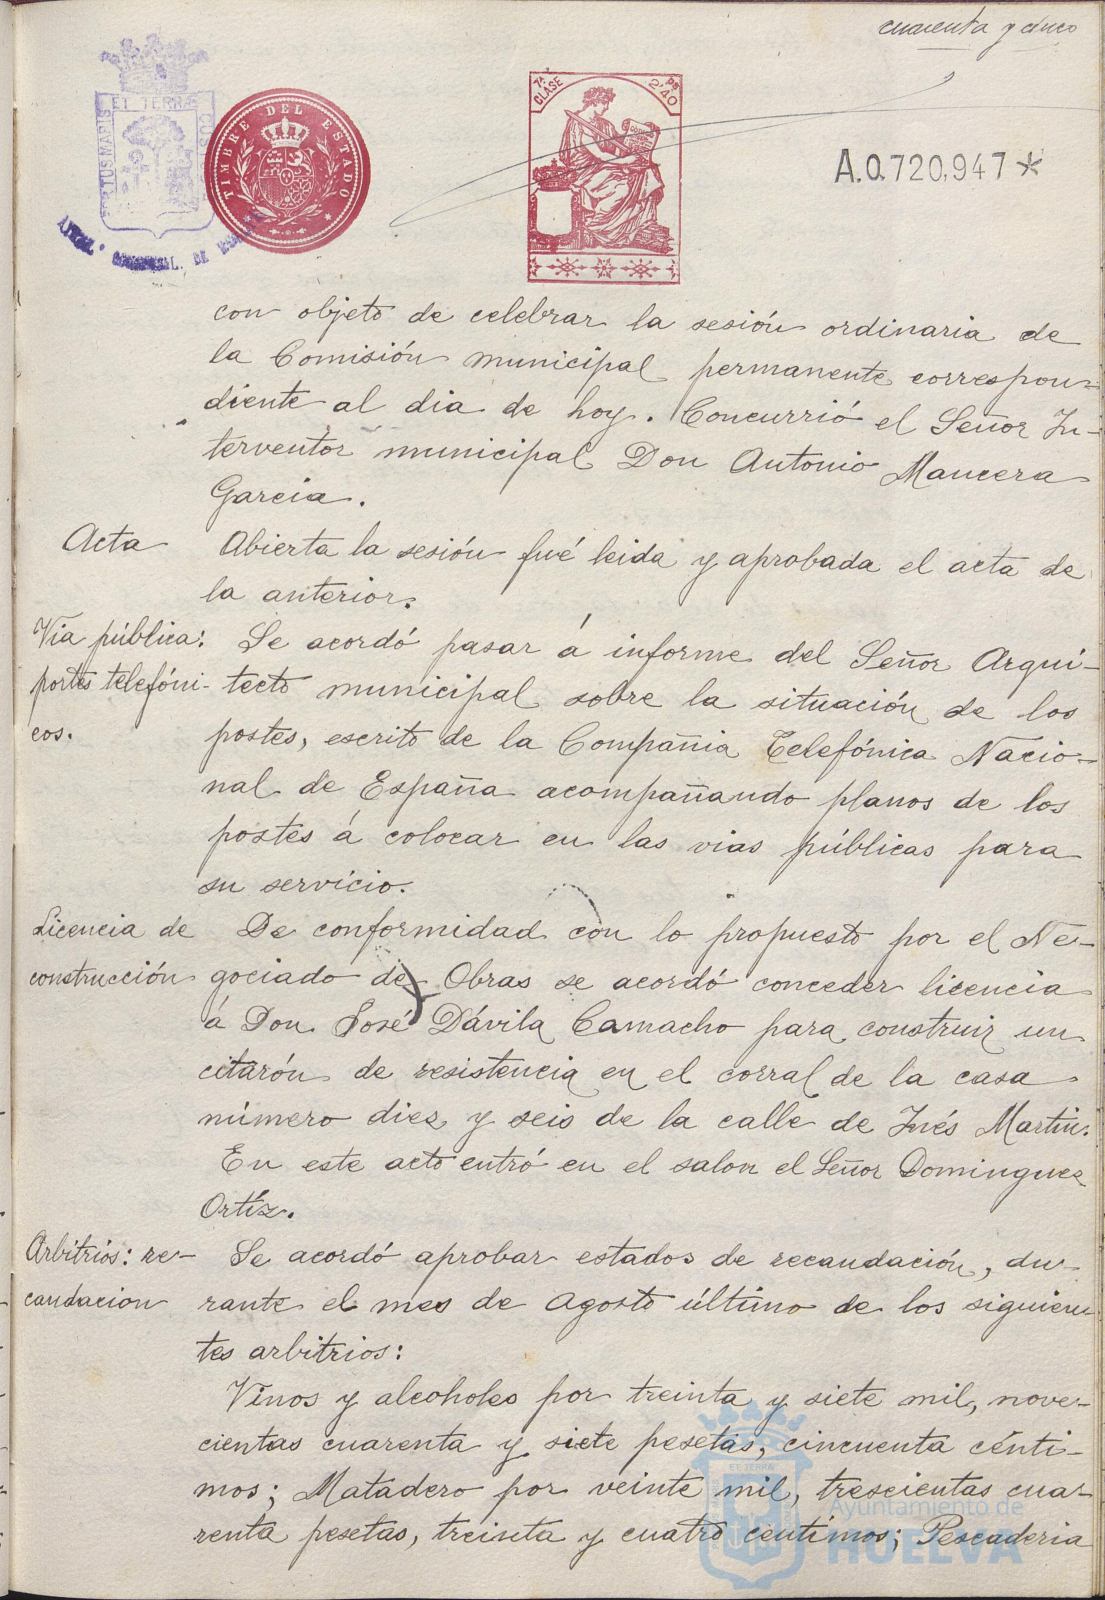 cuarenta y cinco
PORTUS MARIS ET TERRAE CUSTODIA
TIMBRE DEL ESTADO
7ª CLASE
Ps 2'40
A.0.720,947*
con objeto de celebrar la sesión ordinaria de
la Comisión municipal permanente correspon-
diente al dia de hoy. Concurrió el Señor In-
terventor municipal Don Antonio Mancera
Garcia.
Acta
Abierta la sesión fué leida y aprobada el acta de
la anterior.
Via pública:
postes telefóni-
cos.
Se acordó pasar á informe del Señor Arqui-
tecto municipal sobre la situación de los
postes, escrito de la Compañia Telefónica Nacio-
nal de España acompañando planos de los
postes á colocar en las vias públicas para
su servicio.
Licencia de
construcción
De conformidad con lo propuesto por el Ne-
gociado de Obras se acordó conceder licencia
á Don José Dávila Camacho para construir un
citarón de resistencia en el corral de la casa
número diez y seis de la calle de Inés Martin.
En este acto entró en el salon el Señor Dominguez
Ortíz.
Arbitrios: re-
caudacion
Se acordó aprobar estados de recaudación, du-
rante el mes de Agosto último de los siguien-
tes arbitrios:
Vinos y alcoholes por treinta y siete mil, nove-
cientas cuarenta y siete pesetas, cincuenta cénti-
mos; Matadero por veinte mil, trescientas cua-
renta pesetas, treinta y cuatro centimos; Pescaderia
Ayuntamiento de
HUELVA